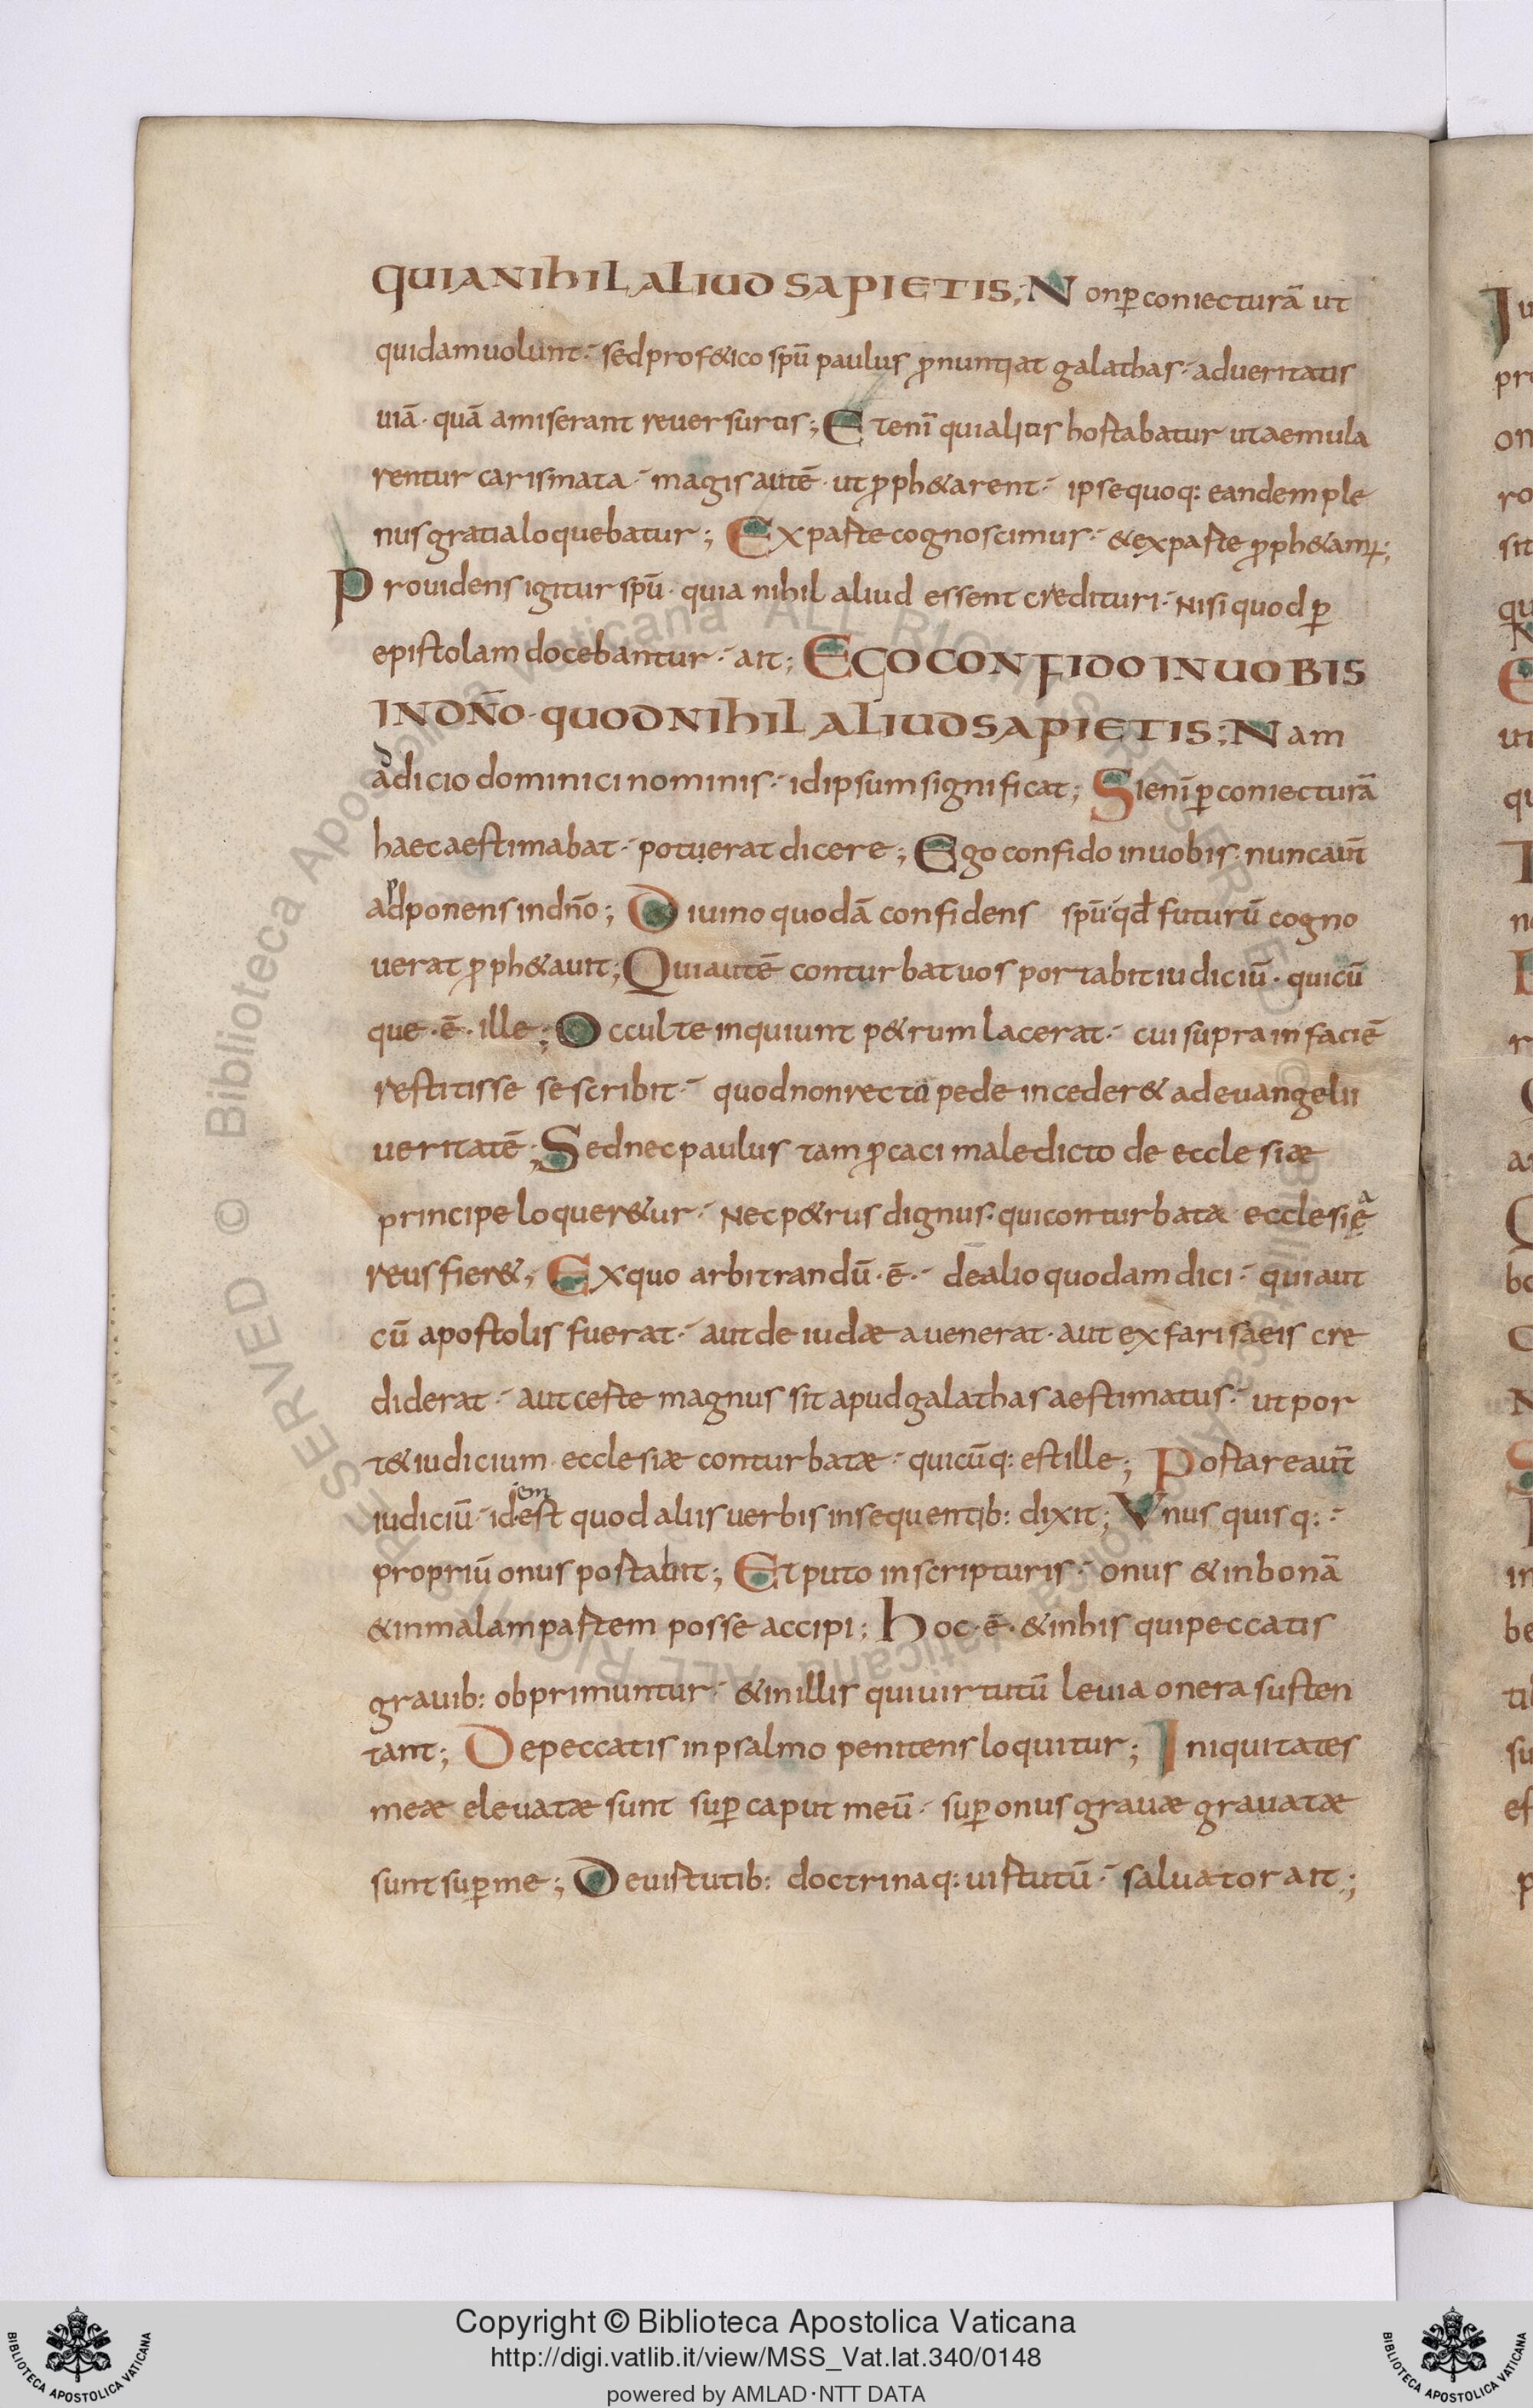 QUIA NIHIL ALIUD SAPIETIS; Non ꝑ coniecturā ut
quidam uolunt· sed prof&ico spū paulus ꝓnuntiat galathas· ad ueritatis
uiā· quā amiserant reuersurtis; Etenī qui aliis hostabatur ut aemula
rentur carismata· magis autē· ut ꝓph&arent· ipse quoq: eandem ple
nus gratia loquebatur; Ex parte cognoscimur· & ex parte ꝓph&am;
Prouidens igitur spū· quia nihil aliud essent credituri· Nisi quod ꝑ
epistolam docebantur· ait; EGO CONFIDO IN UOBIS
IN DÑO· QUOD NIHIL ALIUD SAPIETIS; Nam
adicio dominici nominis· id ipsum significat; Si enī ꝑ coniecturā
haec aestimabat· potuerat dicere; Ego confido in uobis· nunc aut̄
adponens in dño; Diuino quodā confidens spū qd̄ futurū cogno
uerat ꝓph&auit; Qui autē conturbat uos portabit iudiciū· quicū
que· ē· ille; Occulte inquiunt p&rum lacerat· cui supra in faciē
restitisse se scribit· quod non recto pede inceder& ad euangelii
ueritatē; Sed nec paulus tam ꝓcaci maledicto de ecclesiæ
principe loquer&ur· Nec p&rus dignus· qui conturbatæ ecclesię
reus fier&; Ex quo arbitrandū· ē·· de alio quodam dici· qui aut
cū apostolis fuerat· aut de iudæa uenerat· aut ex farisaeis cre
diderat· aut certe magnus sit apud galathas aestimatus· ut por
t& iudicium· ecclesiæ conturbatæ· quicūq: est ille; Portare aut̄
iudiciū· idem est quod aliis uerbis in sequentib: dixit; Vnus quisq:·
propriū onus portabit; Et puto in scripturis· onus & in bonā
& in malam partem posse accipi; Hoc· ē· & in his qui peccatis
grauib: obprimuntur· & in illis qui uirtutū leuia onera susten
tant; De peccatis in psalmo penitens loquitur; Iniquitates
meæ eleuatæ sunt suꝑ caput meū· suꝑ onus grauæ grauatæ
sunt suꝑ me; De uirtutib: doctrinaq: uirtutū· saluator ait;
© Biblioteca Apostolica Vaticana ALL RIGHTS RESERVED
Copyright © Biblioteca Apostolica Vaticana
http://digi.vatlib.it/view/MSS_Vat.lat.340/0148
powered by AMLAD·NTT DATA
BIBLIOTECA APOSTOLICA VATICANA
BIBLIOTECA APOSTOLICA VATICANA